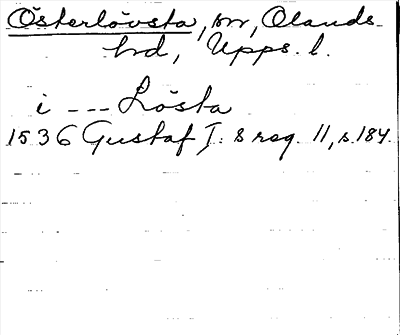 Österlövsta, sn, Olands
hd, Upps. l.
i --- Lösta
1536 Gustaf I:s reg. 11, s. 184.